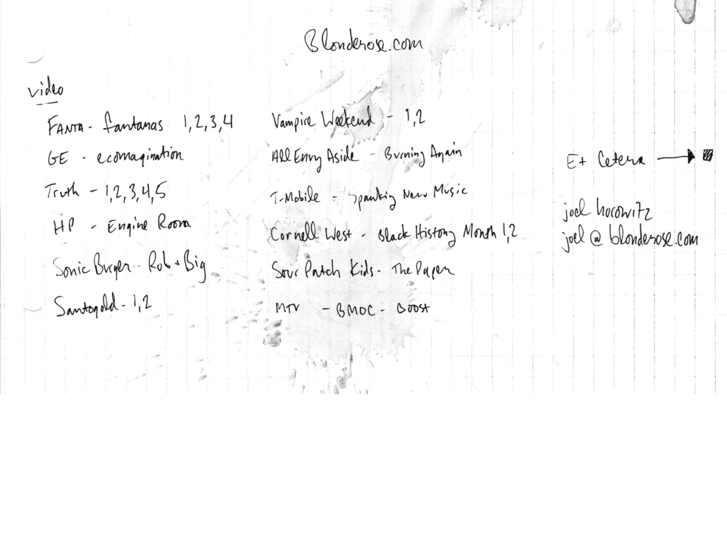 Blonderose.com
video
FANTA - fantanas 1,2,3,4
GE - ecomagination
Truth - 1,2,3,4,5
HP - Engine Room
Sonic Burger - Rob + Big
Santogold - 1,2
Vampire Weekend - 1,2
All Envy Aside - Burning Again
T-Mobile - Spanking New Music
Cornell West - Black History Month 1,2
Sour Patch Kids - The Paper
MTV - BMOC - Boost
Et Cetera
joel horowitz
joel@blonderose.com